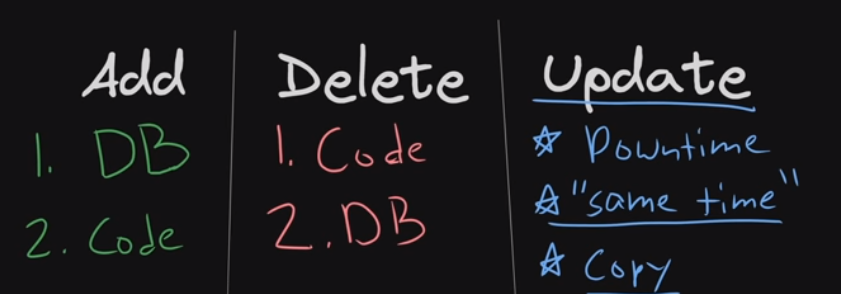 Add
1. DB
2. Code
Delete
1. Code
2. DB
Update
☆ Downtime
☆ "same time"
☆ Copy